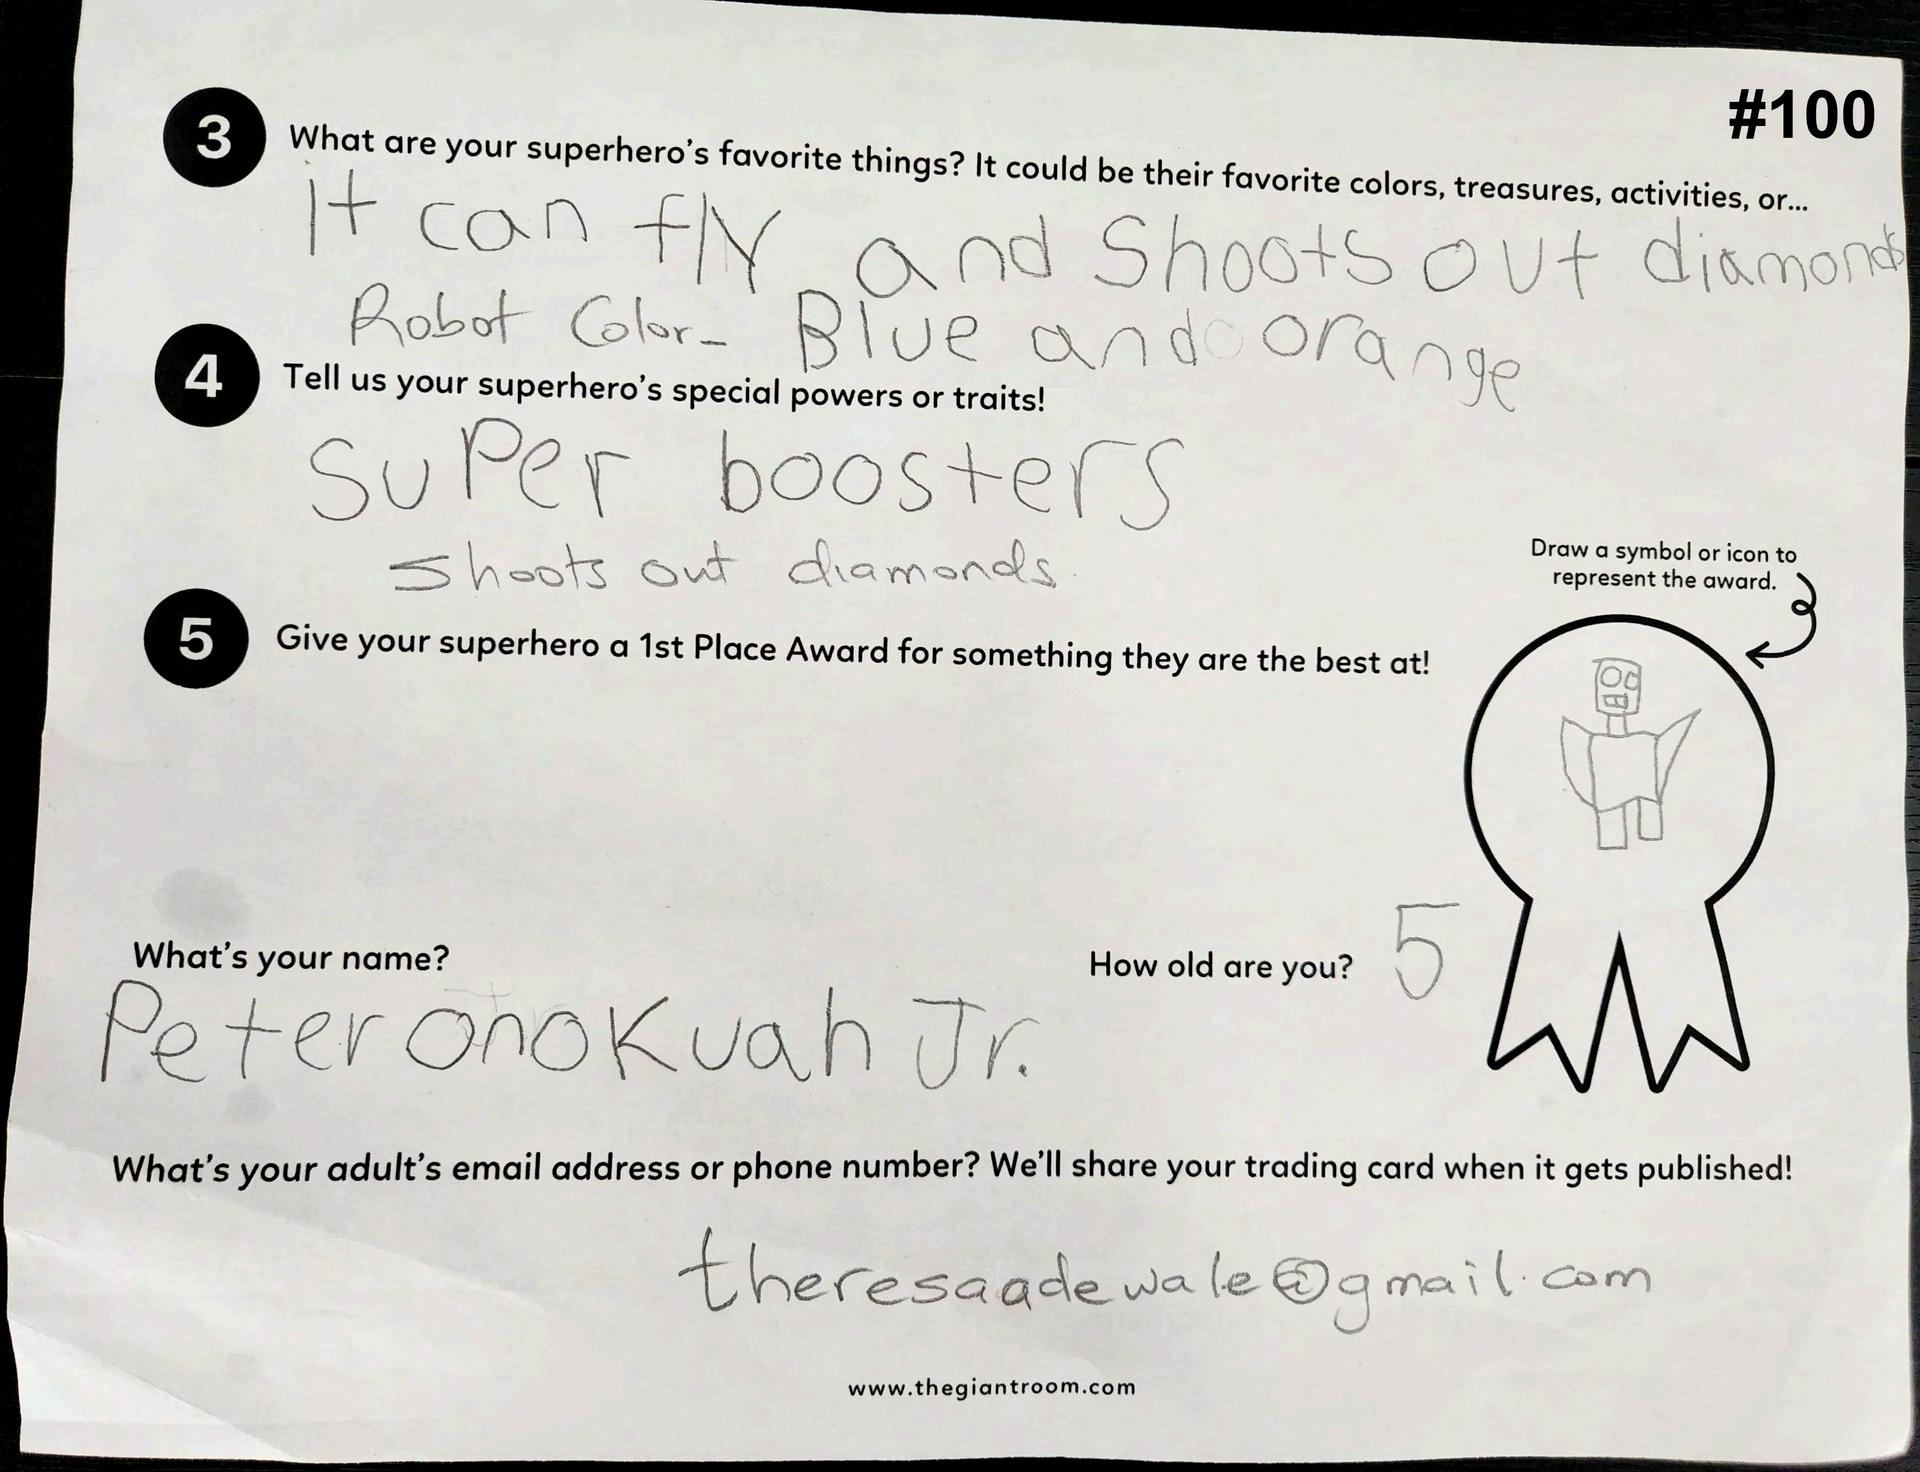 #100
3 What are your superhero's favorite things? It could be their favorite colors, treasures, activities, or...
It can fly and Shoots out diamonds
Robot Color- Blue and orange
4 Tell us your superhero's special powers or traits!
Super boosters
shoots out diamonds
Draw a symbol or icon to
represent the award.
5 Give your superhero a 1st Place Award for something they are the best at!
What's your name?
How old are you? 5
Peter onokuah Jr.
What's your adult's email address or phone number? We'll share your trading card when it gets published!
theresaadewale@gmail.com
www.thegiantroom.com